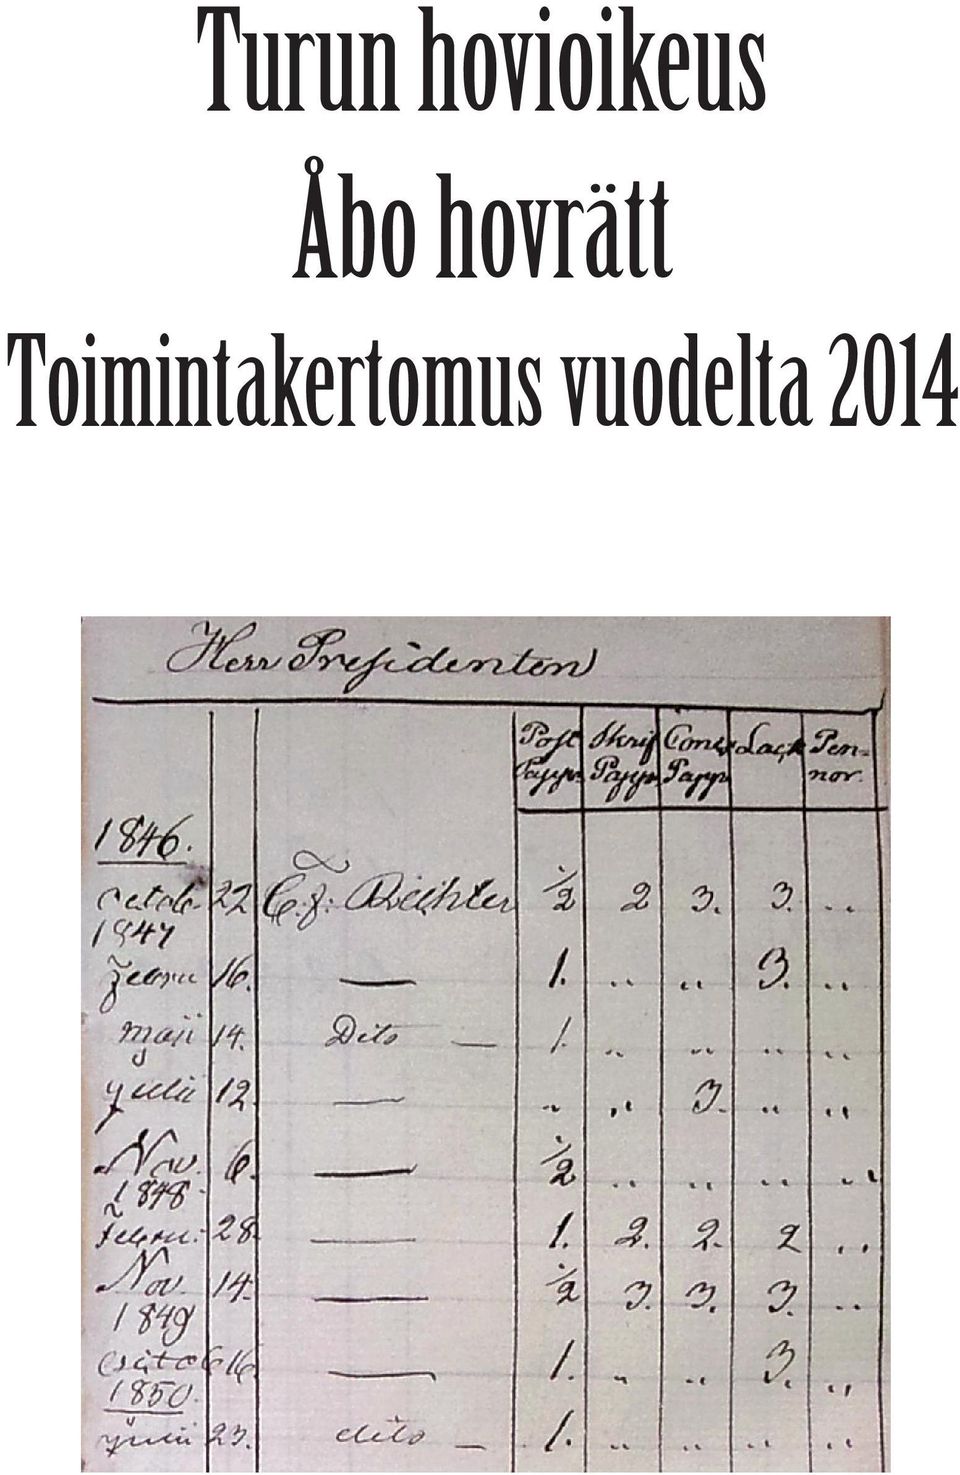 Turun hovioikeus
Åbo hovrätt
Toimintakertomus vuodelta 2014
Herr Presidenten
Post Skrif Conc Lack Pen-
Papp. Papp. Papp nor.
1846.
22 C. f: 1/2 2 3. 3. ..
1847
Febru 16. — 1. .. .. 3. ..
Maji 14. Dito — 1. .. .. .. ..
Julii 12. — .. .. 3. .. ..
Nov. 6. — 1/2 .. .. .. ..
1848
Febru: 28. — 1. 2. 2. 2 ..
Nov. 14. — 1/2 3. 3. 3. ..
1849
16. — 1. .. .. 3. ..
1850.
Junii 23. dito — 1. .. .. .. ..